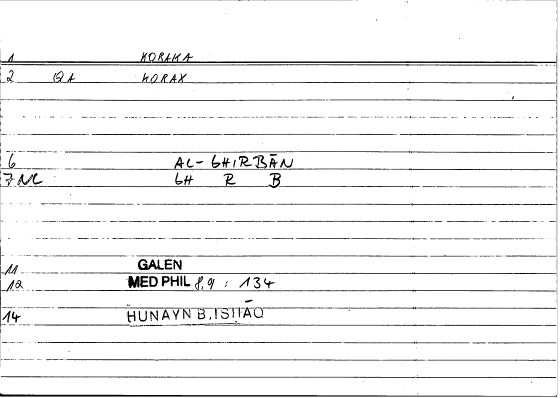 1 KORAKA
2 QA KORAX
6 AL-GHIRBĀN
7 NC GH R B
11 GALEN
12 MED PHIL 8,9 : 134
14 HUNAYN B. ISHĀQ